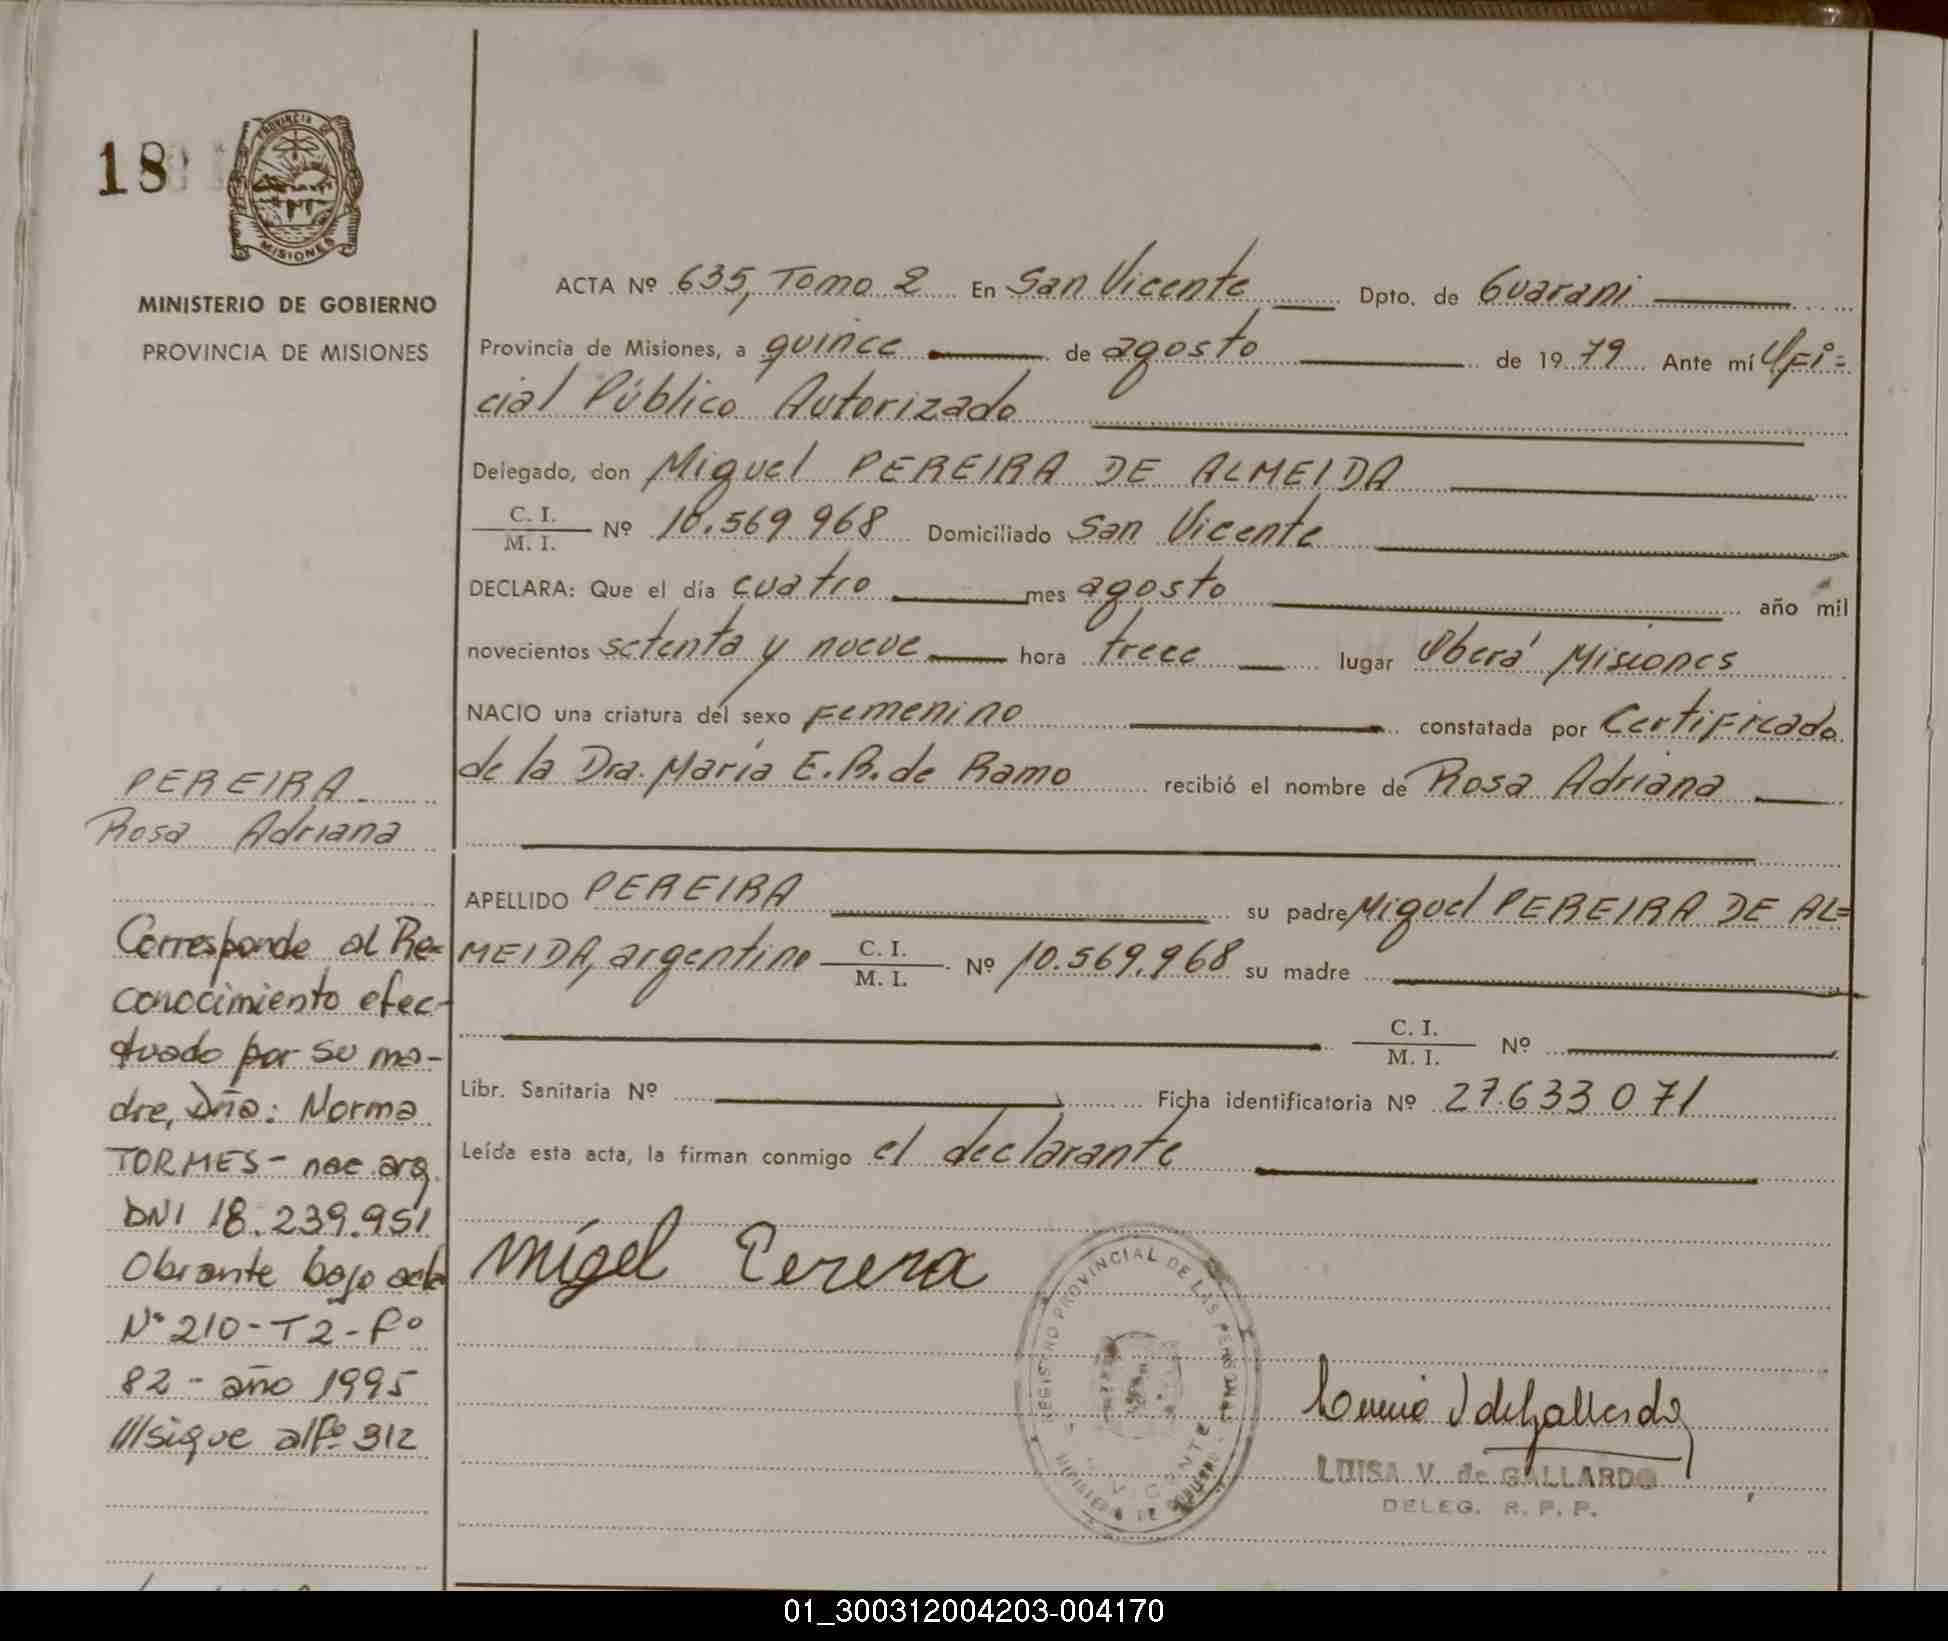 18
PROVINCIA DE
MISIONES
MINISTERIO DE GOBIERNO
PROVINCIA DE MISIONES
ACTA Nº 635, Tomo 2 En San Vicente Dpto. de Guarani
Provincia de Misiones, a quince de agosto de 1979 Ante mí Ofi=
cial Público Autorizado
Delegado, don Miguel PEREIRA DE ALMEIDA
C. I.
M. I. Nº 10.569.968 Domiciliado San Vicente
DECLARA: Que el día cuatro mes agosto año mil
novecientos setenta y nueve hora trece lugar Oberá Misiones
NACIO una criatura del sexo Femenino constatada por Certificado
de la Dra. María E. R. de Ramo recibió el nombre de Rosa Adriana
PEREIRA
Rosa Adriana
APELLIDO PEREIRA su padre Miguel PEREIRA DE AL=
MEIDA, argentino C. I. M. I. Nº 10.569.968 su madre
C. I.
M. I. Nº
Libr. Sanitaria Nº Ficha identificatoria Nº 27.633 071
Leída esta acta, la firman conmigo el declarante
Corresponde al Re=
conocimiento efec-
tuado por su ma-
dre, Dña: Norma
TORMES - nac arg.
DNI 18.239.951
Obrante bajo acta
Nº 210 - T2 - Fº
82 - año 1995
///sigue al Fº 312
Migel Perera
REGISTRO PROVINCIAL DE LAS PERSONAS
MINISTERIO DE GOBIERNO
LUISA V. de GALLARDO
DELEG. R. P. P.
01_300312004203-004170